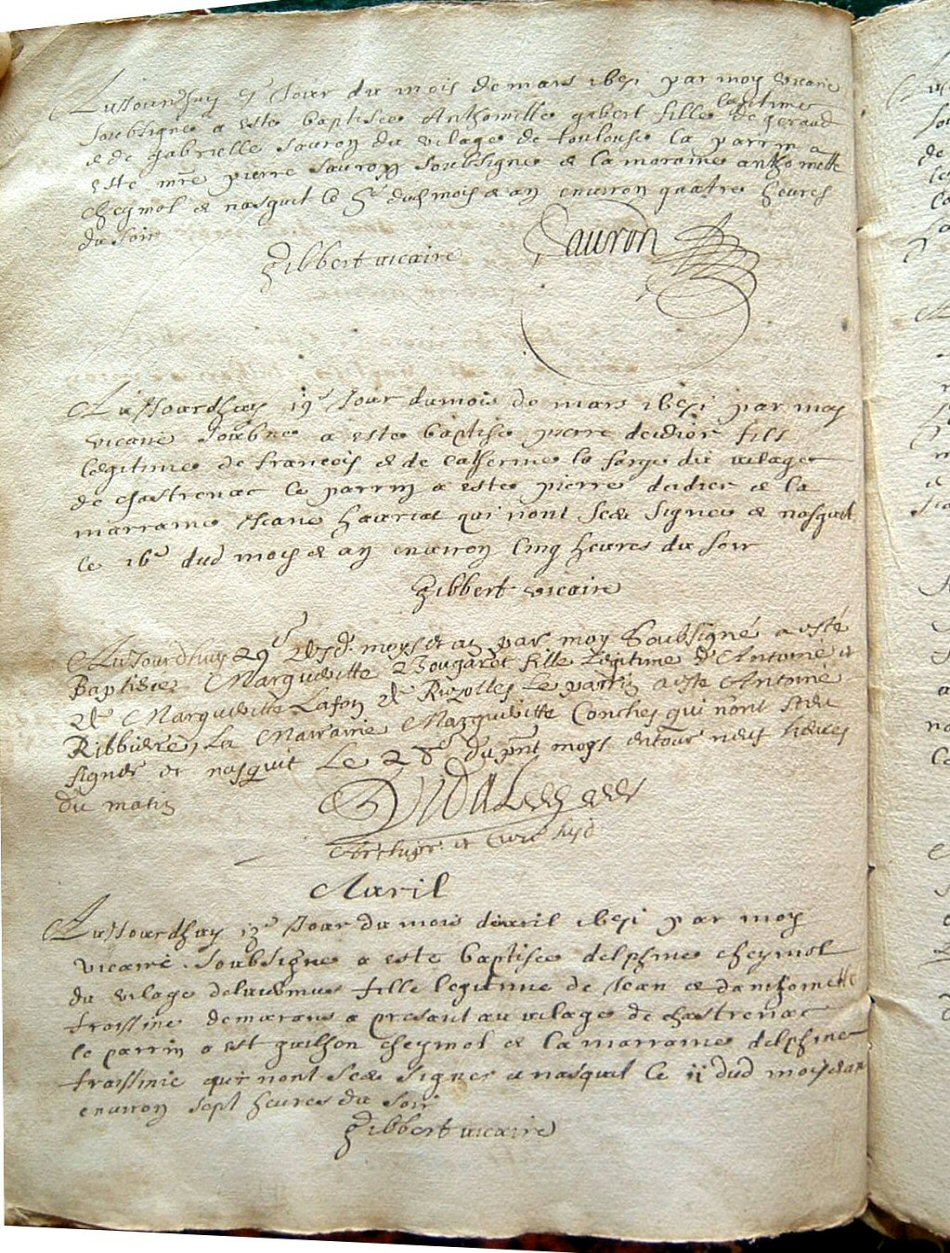 Aujourdhuy jour du mois de mars par moy vicaire
soubsigne a este baptisee Anthoinette gabert fille legitime de geraud
& de gabrielle Sauron du vilage de toulouse la parrin a
este mre pierre Sauron soubsigne & la maraine anthoinette
cheymol & nasquit le dud mois & an environ quatre heures
du soir
Gibbert vicaire
Sauron
Aujourdhuy 19e Jour du mois de mars par moy
vicaire a este baptise pierre deidier fils
legitime de francois & de catherine la forge du vilage
de chastrenac le parrin a este pierre deidier & la
marraine Jeane qui nont sceu signer & nasquit
le 16e dud mois & an environ cinq heures du soir
Gibbert vicaire
Aujourdhuy 29e moys et an par moy Soubsigné a esté
Baptisée Marguerite Bougarot fille Legitime d'Antoine et
de Marguerite Lafon de Rizolles Le parrin a este Antoine
Ribbiere, La Marraine Marguerite Conches qui n'ont sceu
signer et nasquit Le 28e du pnt moys entour neuf heures
du matin
et Curé
Avril
Aujourdhuy Jour du mois davril par moy
vicaire soubsigne a este baptisee delphine cheymol
du vilage fille legitime de Jean & danthoinette
froissinie demurans a presant au vilage de chastrenac
le parrin a est guilhon cheymol & la marraine delphine
fraissinie qui nont sceu signer & nasquit le 11 dud mois & an
environ sept heures du soir
Gibbert vicaire